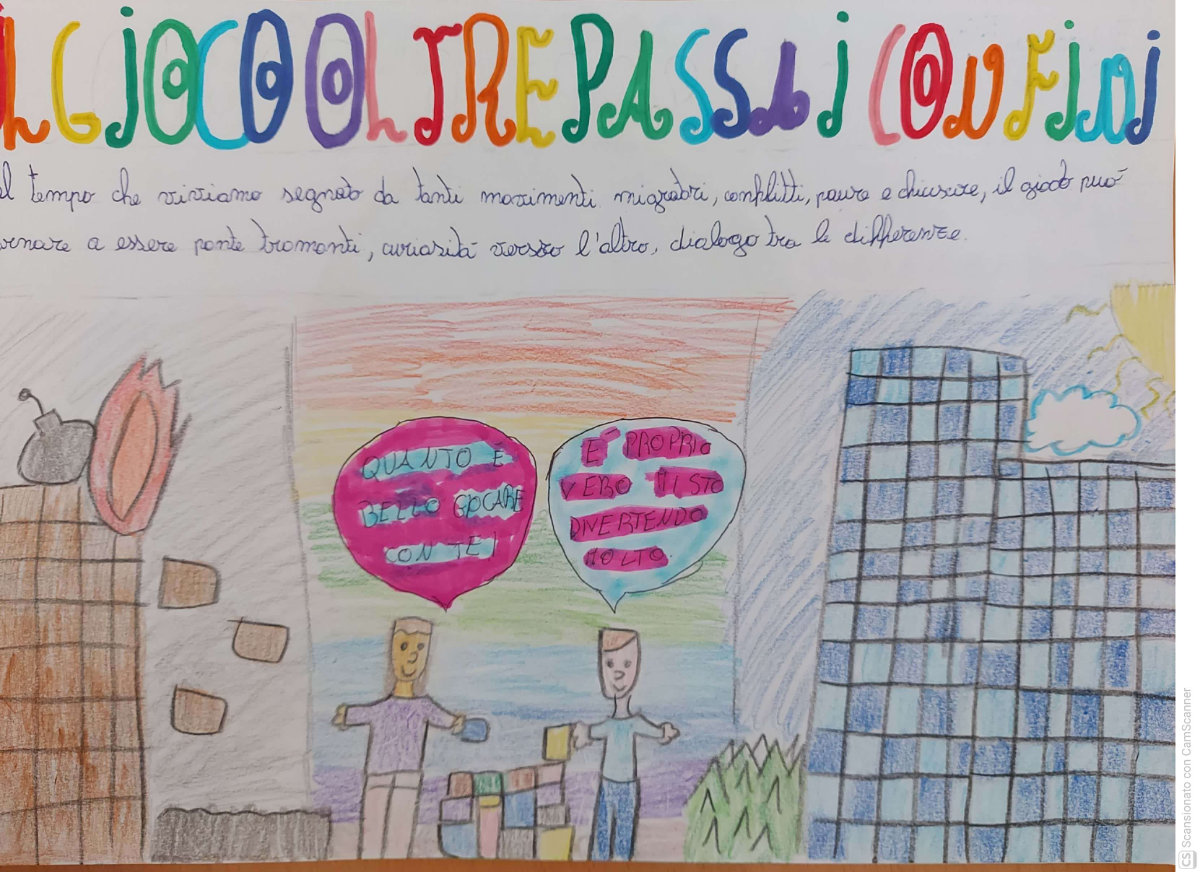 IL GIOCO OLTREPASSA I CONFINI
el tempo che viviamo segnato da tanti movimenti migratori, conflitti, paure e chiusure, il gioco può
rnare a essere ponte tramonti, curiosità verso l'altro, dialogo tra le differenze.
QUANTO È
BELLO GIOCARE
CON TE!
E' PROPRIO
VERO MI STO
DIVERTENDO
MOLTO.
CS Scansionato con CamScanner